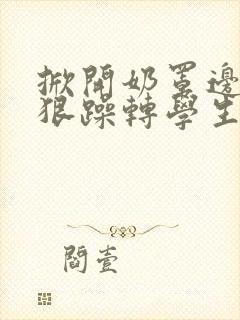 掀開奶罩邊
狠躁轉學生
閻壹